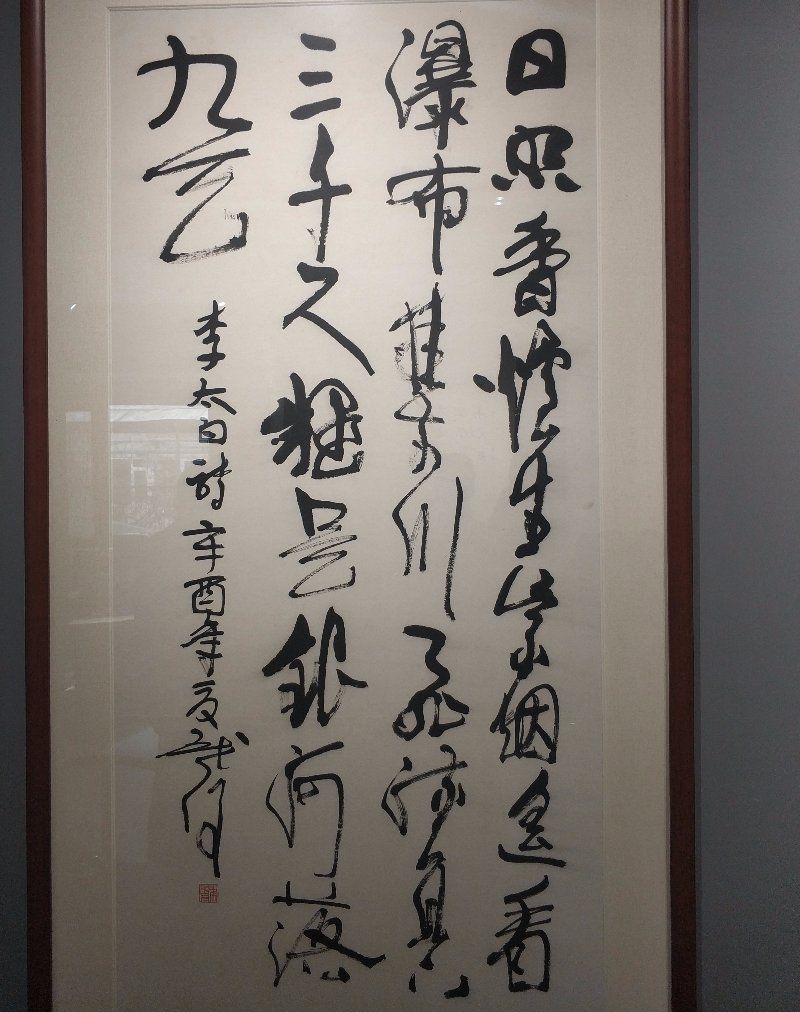 日照香爐生紫烟遙看
瀑布挂前川飛流直下
三千尺疑是銀河落
九天
李太白詩辛酉年夏